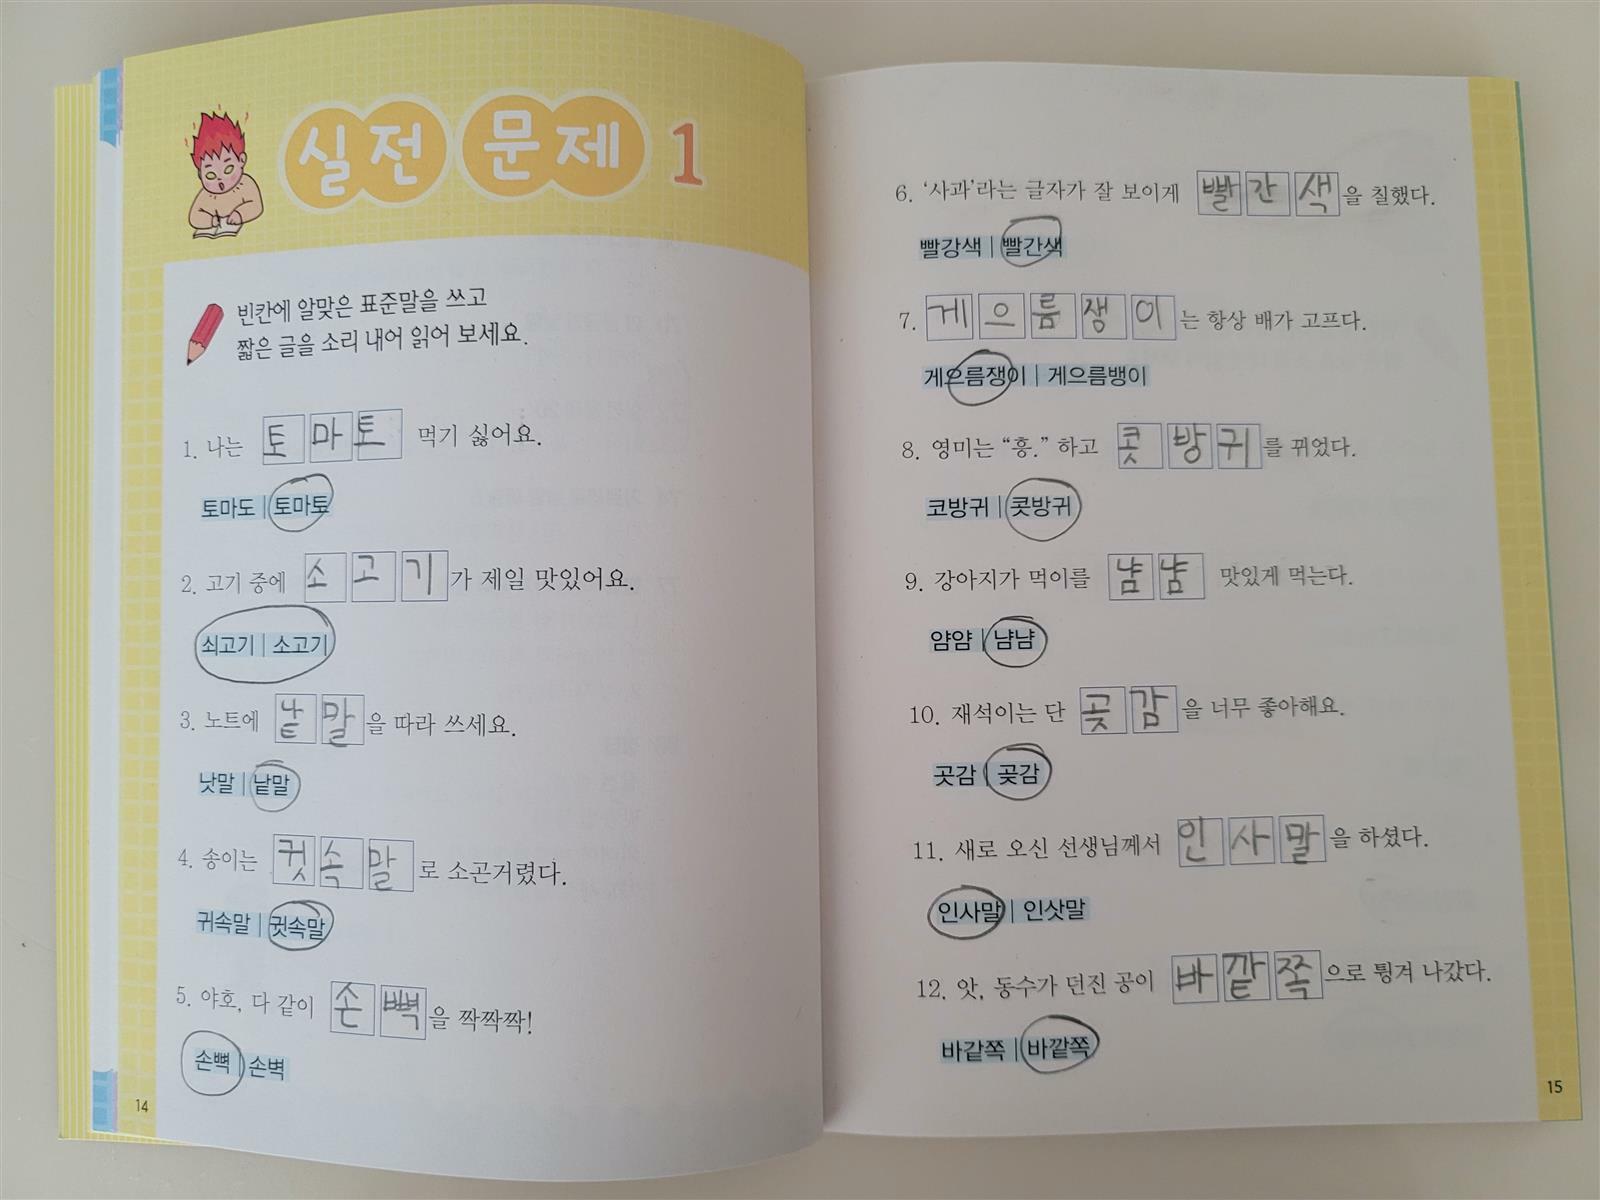 실전 문제 1
빈칸에 알맞은 표준말을 쓰고
짧은 글을 소리 내어 읽어 보세요.
1. 나는 토마토 먹기 싫어요.
토마도 | 토마토
2. 고기 중에 소고기가 제일 맛있어요.
쇠고기 | 소고기
3. 노트에 낱말을 따라 쓰세요.
낫말 | 낱말
4. 송이는 귓속말로 소곤거렸다.
귀속말 | 귓속말
5. 야호, 다 같이 손뼉을 짝짝짝!
손뼉 | 손벽
14
6. ‘사과’라는 글자가 잘 보이게 빨간색을 칠했다.
빨강색 | 빨간색
7. 게으름쟁이는 항상 배가 고프다.
게으름쟁이 | 게으름뱅이
8. 영미는 “흥.” 하고 콧방귀를 뀌었다.
코방귀 | 콧방귀
9. 강아지가 먹이를 냠냠 맛있게 먹는다.
얌얌 | 냠냠
10. 재석이는 단 곶감을 너무 좋아해요.
곳감 | 곶감
11. 새로 오신 선생님께서 인사말을 하셨다.
인사말 | 인삿말
12. 앗, 동수가 던진 공이 바깥쪽으로 튕겨 나갔다.
바같쪽 | 바깥쪽
15